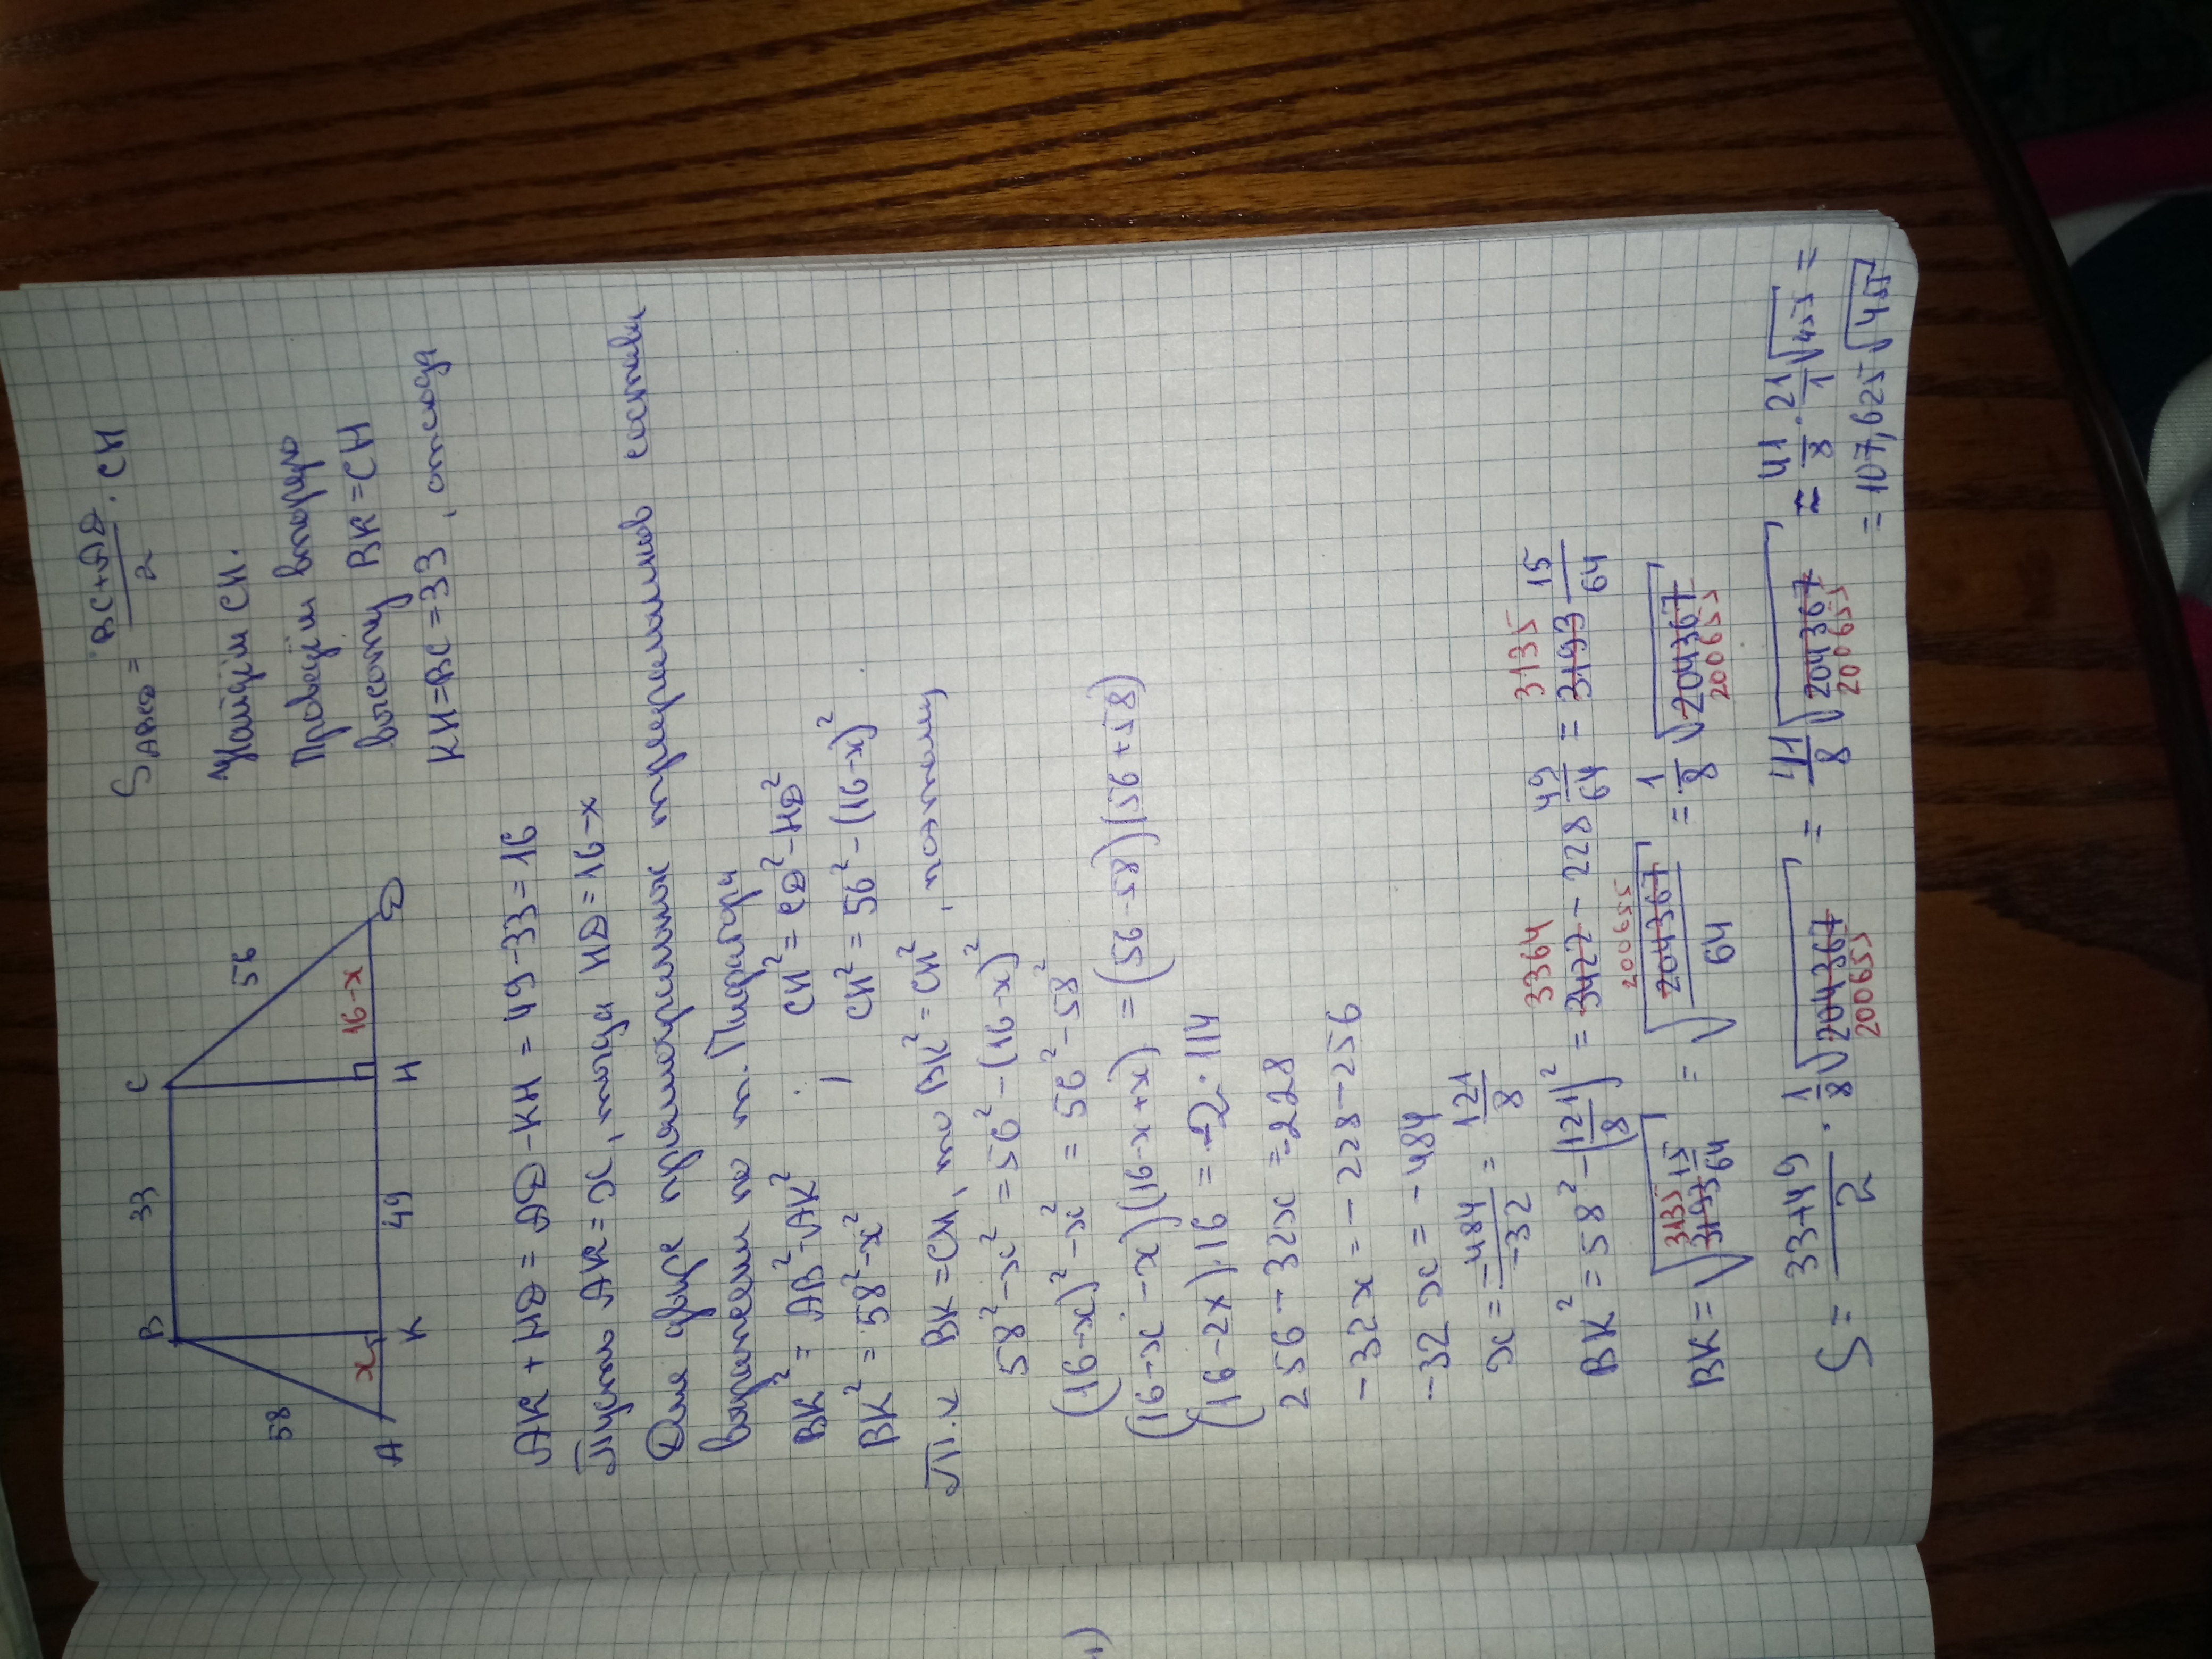 B 33 C
58 56
x 16-x
A K 49 H D
S_ABCD = (BC+AD)/2 · CH
Найдём CH.
Проведём вторую
высоту BK=CH
KH=BC=33, отсюда
AK+HD=AD-KH=49-33=16
Пусть AK=x, тогда HD=16-x
Для двух прямоугольных треугольников составим
выражения по т. Пифагора
BK²=AB²-AK² CH²=CD²-HD²
BK²=58²-x² CH²=56²-(16-x)²
Т.к BK=CH, то BK²=CH², поэтому
58²-x²=56²-(16-x)²
(16-x)²-x²=56²-58²
(16-x-x)(16-x+x)=(56-58)(56+58)
(16-2x)·16=-2·114
256-32x=-228
-32x=-228-256
-32x=-484
x=-484/-32=121/8
3364 3135
BK²=58²-(121/8)²=3422-228 49/64=3193 15/64
3135 200655
BK=√(3193 15/64)=√(204367/64)=1/8√204367
200655
S=(33+49)/2·1/8√204367=41/8√204367≈41/8·21/1√455=
200655 200655
=107,625√455